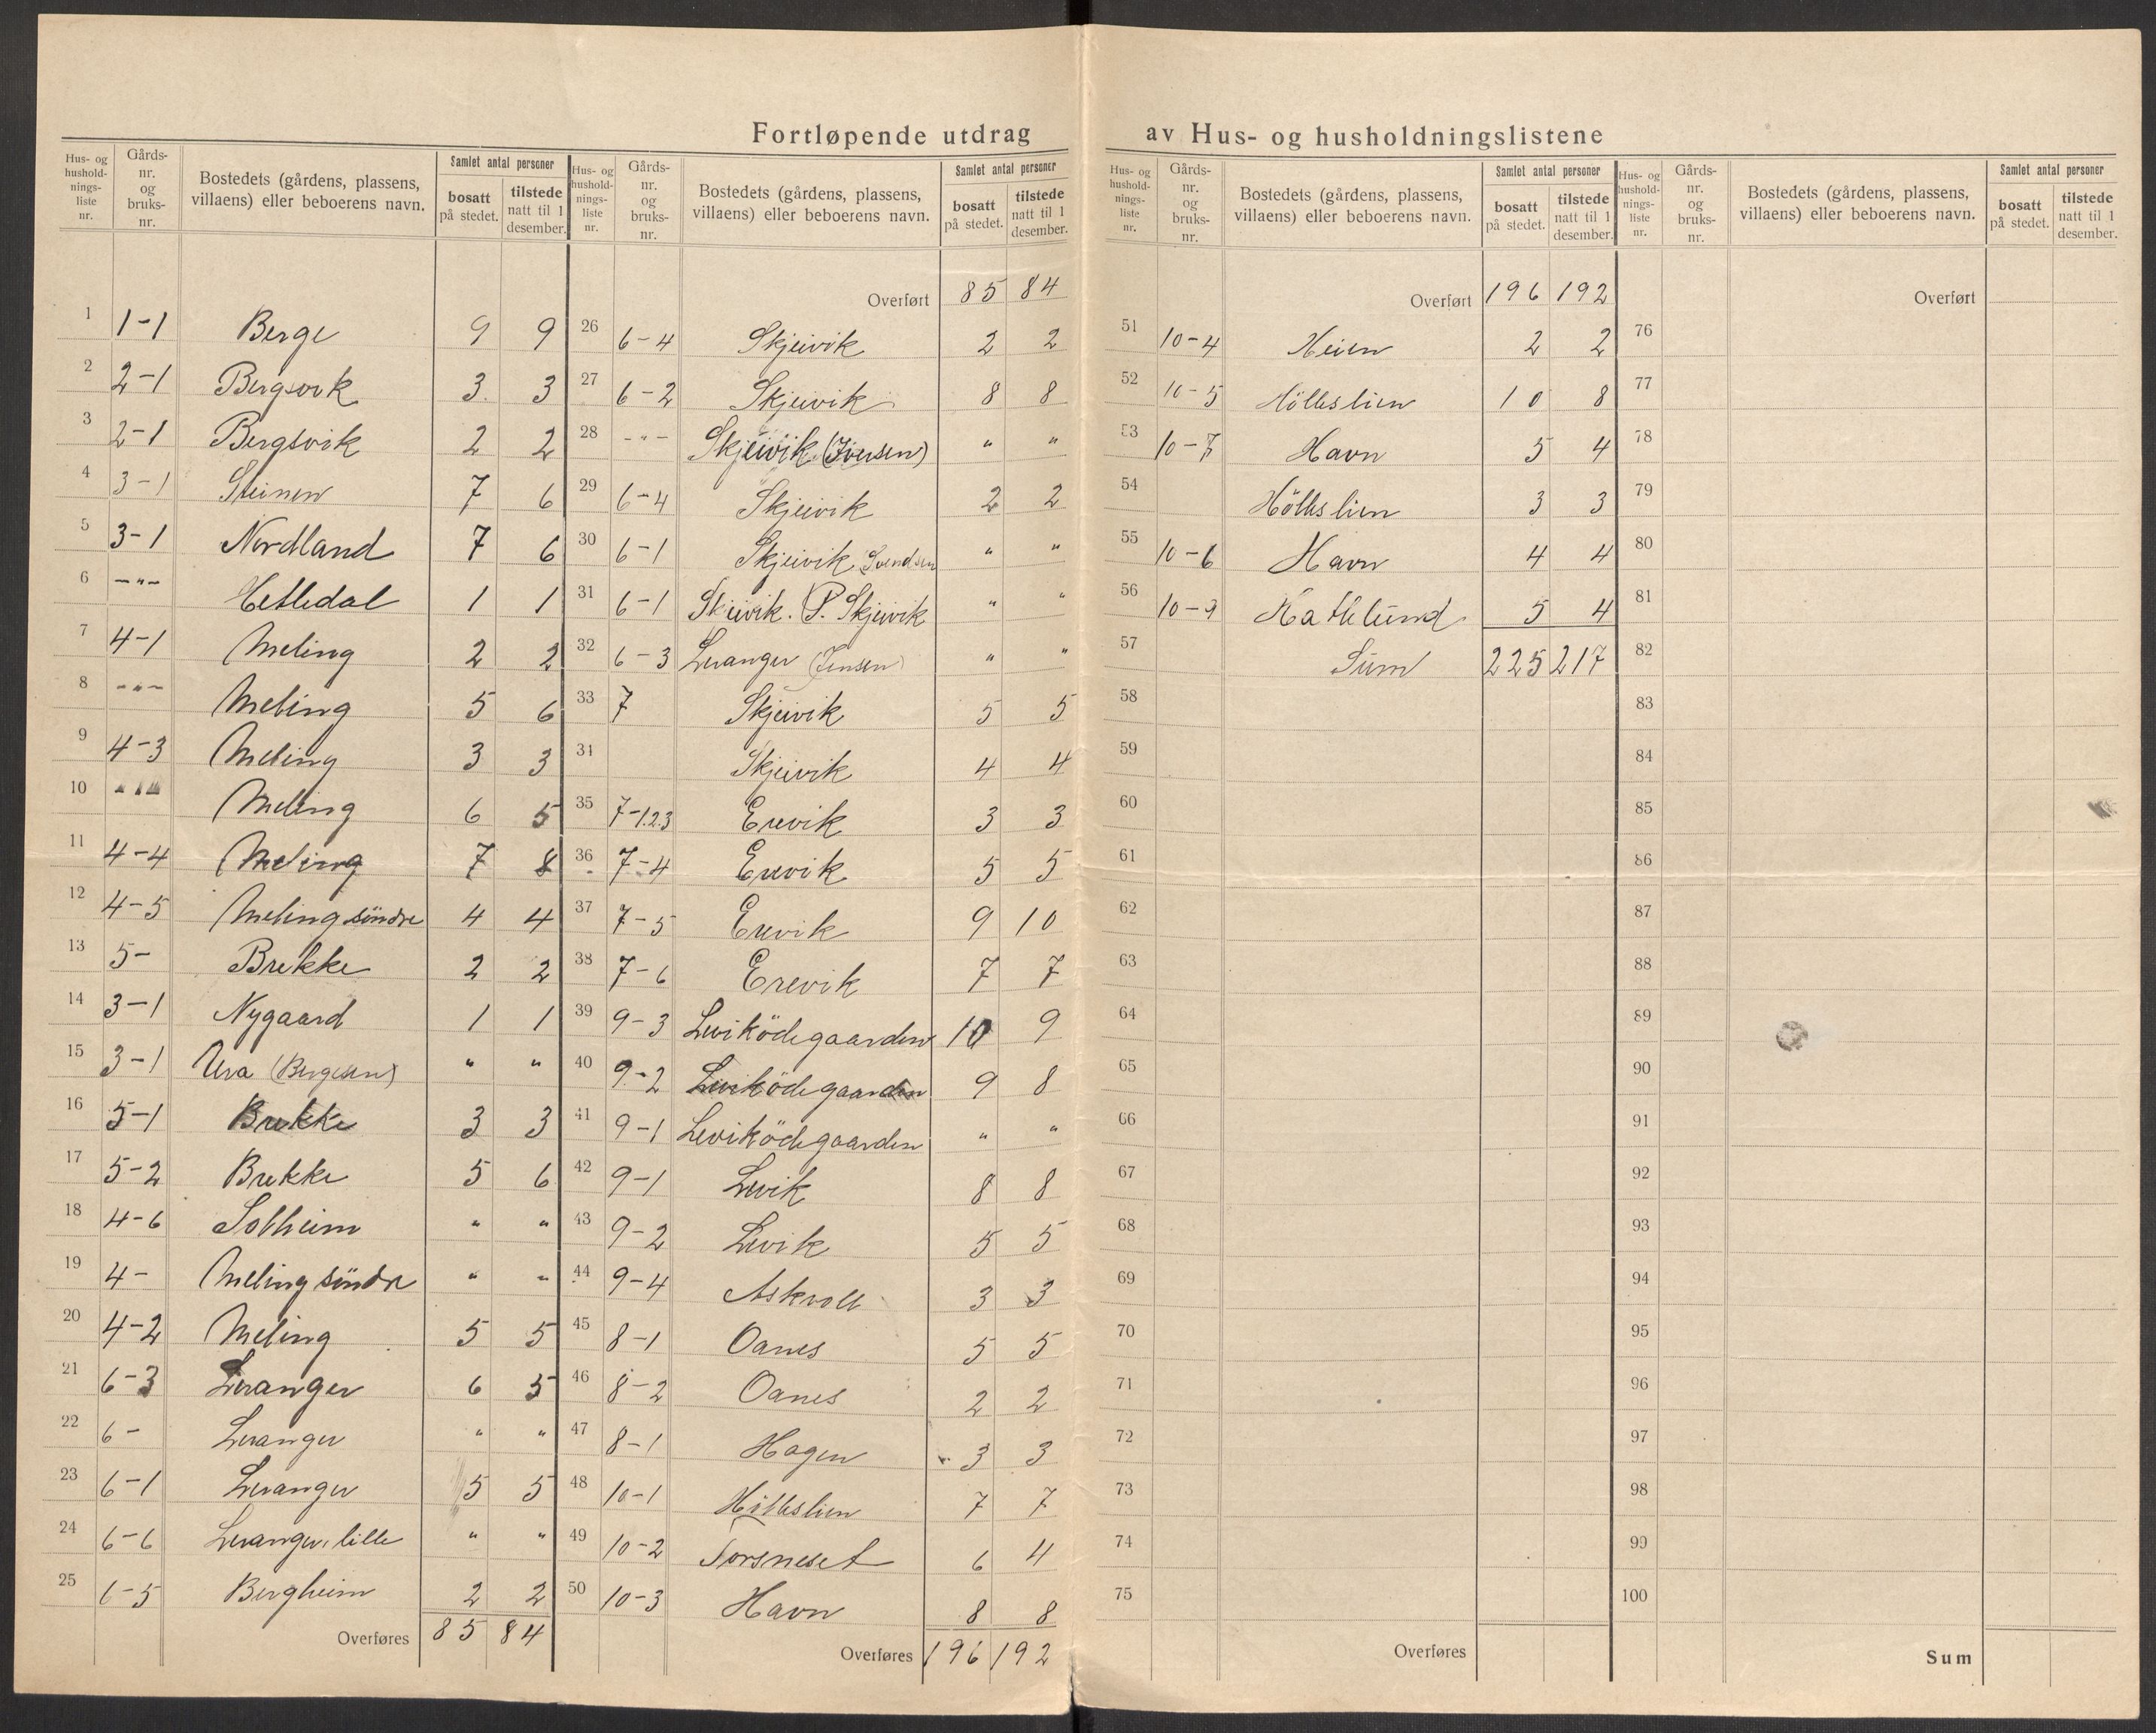 Fortløpende utdrag av Hus- og husholdningslistene
Hus- og hushold-nings-liste nr. | Gårds-nr. og bruks-nr. | Bostedets (gårdens, plassens, villaens) eller beboerens navn. | Samlet antal personer | bosatt på stedet. | tilstede natt til 1 desember.
1 1-1 Berge 9 9
2 2-1 Bergsvik 3 3
3 2-1 Bergsvik 2 2
4 3-1 Steinen 7 6
5 3-1 Nordland 7 6
6 -"- Hetledal 1 1
7 4-1 Meling 2 2
8 -"- Meling 5 6
9 4-3 Meling 3 3
10 "" Meling 6 5
11 4-4 Meling 7 8
12 4-5 Meling söndre 4 4
13 5- Brekke 2 2
14 3-1 Nygaard 1 1
15 3-1 Ura (Bergesen) " "
16 5-1 Brekke 3 3
17 5-2 Brekke 5 6
18 4-6 Solheim " "
19 4- Meling söndre " "
20 4-2 Meling 5 5
21 6-3 Levanger 6 5
22 6- Levanger " "
23 6-1 Levanger 5 5
24 6-6 Levanger, lille " "
25 6-5 Bergheim 2 2
Overføres 85 84
Hus- og hushold-nings-liste nr. | Gårds-nr. og bruks-nr. | Bostedets (gårdens, plassens, villaens) eller beboerens navn. | Samlet antal personer | bosatt på stedet. | tilstede natt til 1 desember.
Overført 85 84
26 6-4 Skjeivik 2 2
27 6-2 Skjeivik 8 8
28 -"- Skjeivik (Iversen) " "
29 6-4 Skjeivik 2 2
30 6-1 Skjeivik Svendsen " "
31 6-1 Skjeivik. P. Skjeivik " "
32 6-3 Levanger (Jensen) " "
33 7 Skjeivik 5 5
34 Skjeivik 4 4
35 7-1.2.3 Erevik 3 3
36 7-4 Erevik 5 5
37 7-5 Erevik 9 10
38 7-6 Erevik 7 7
39 9-3 Leviködegaarden 10 9
40 9-2 Leviködegaarden 9 8
41 9-1 Leviködegaarden " "
42 9-1 Levik 8 8
43 9-2 Levik 5 5
44 9-4 Askvoll 3 3
45 8-1 Oanes 5 5
46 8-2 Oanes 2 2
47 8-1 Hagen 3 3
48 10-1 Hölleslien 7 7
49 10-2 Forsneset 6 4
50 10-3 Havn 8 8
Overføres 196 192
Hus- og hushold-nings-liste nr. | Gårds-nr. og bruks-nr. | Bostedets (gårdens, plassens, villaens) eller beboerens navn. | Samlet antal personer | bosatt på stedet. | tilstede natt til 1 desember.
Overført 196 192
51 10-4 Heien 2 2
52 10-5 Hölleslien 10 8
53 10-7 Havn 5 4
54 Hölleslien 3 3
55 10-6 Havn 4 4
56 10-9 Hatlelund 5 4
57 Sum 225 217
58
59
60
61
62
63
64
65
66
67
68
69
70
71
72
73
74
75
Overføres
Hus- og hushold-nings-liste nr. | Gårds-nr. og bruks-nr. | Bostedets (gårdens, plassens, villaens) eller beboerens navn. | Samlet antal personer | bosatt på stedet. | tilstede natt til 1 desember.
Overført
76
77
78
79
80
81
82
83
84
85
86
87
88
89
90
91
92
93
94
95
96
97
98
99
100
Sum